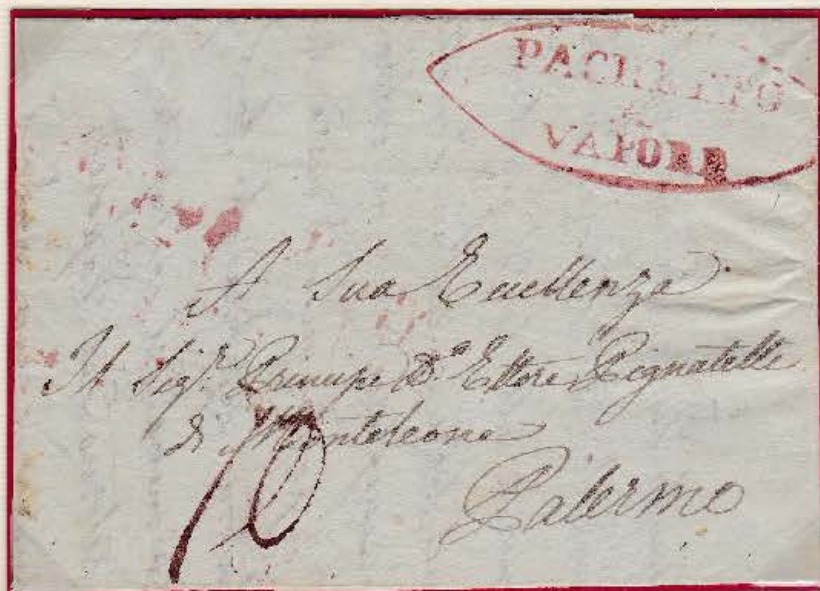 PACHETTO
A
VAPORE
A Sua Eccellenza
Il Sigr. Principe Dn. Ettore Pignatelli
di Monteleone
Palermo
10